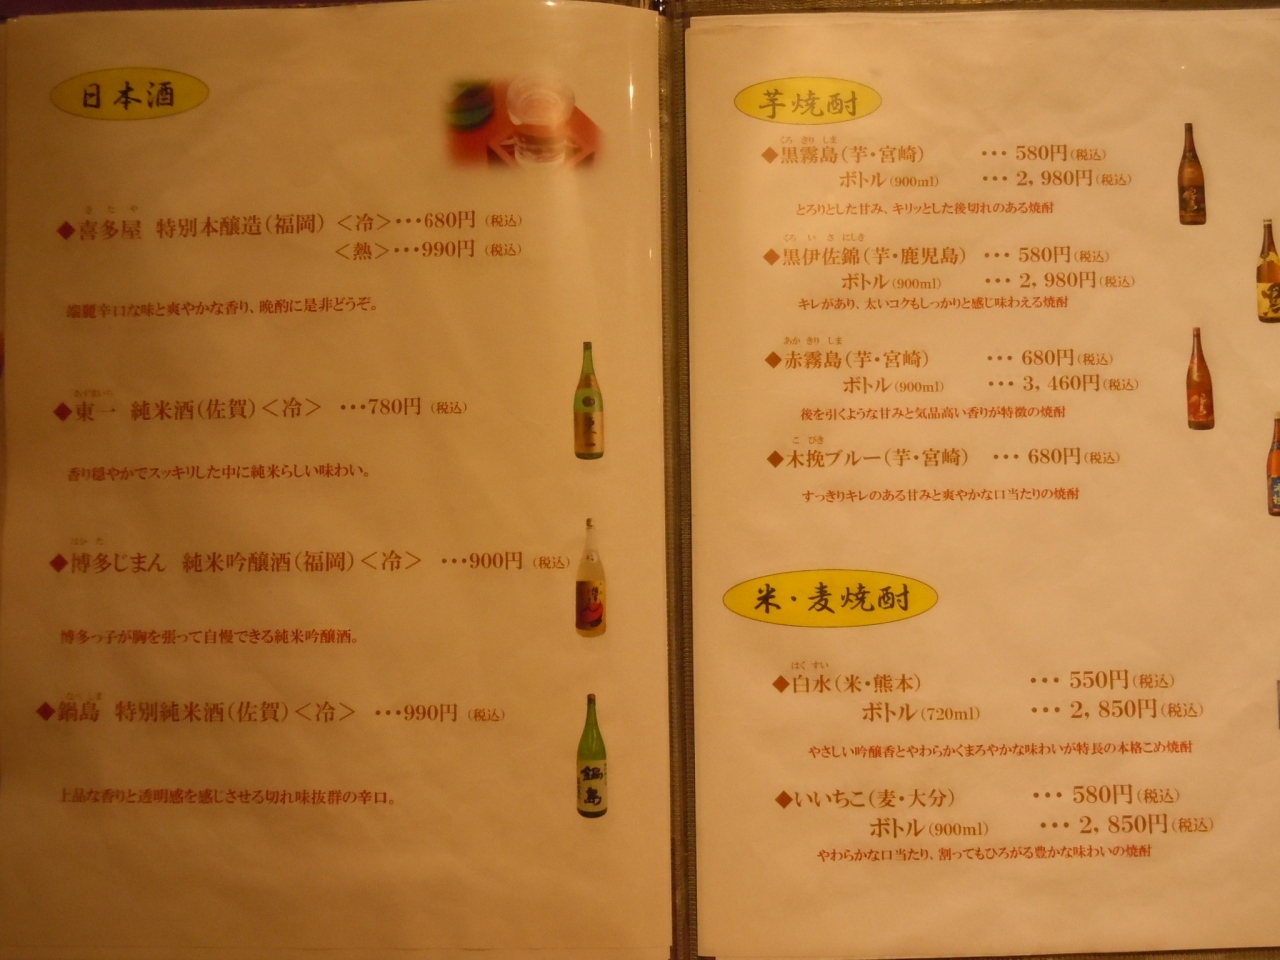 日本酒
きたや
◆喜多屋 特別本醸造(福岡) <冷>・・・680円(税込)
<熱>・・・990円(税込)
端麗辛口な味と爽やかな香り、晩酌に是非どうぞ。
◆東一 純米酒(佐賀)<冷> ・・・780円(税込)
香り穏やかでスッキリした中に純米らしい味わい。
はかた
◆博多じまん 純米吟醸酒(福岡)<冷> ・・・900円(税込)
博多っ子が胸を張って自慢できる純米吟醸酒。
なべしま
◆鍋島 特別純米酒(佐賀)<冷> ・・・990円(税込)
上品な香りと透明感を感じさせる切れ味抜群の辛口。
鍋島
芋焼酎
くろ きり しま
◆黒霧島(芋・宮崎) ・・・ 580円(税込)
ボトル(900ml) ・・・ 2,980円(税込)
とろりとした甘み、キリッとした後切れのある焼酎
くろ い さ にしき
◆黒伊佐錦(芋・鹿児島) ・・・ 580円(税込)
ボトル(900ml) ・・・ 2,980円(税込)
キレがあり、太いコクもしっかりと感じ味わえる焼酎
あか きり しま
◆赤霧島(芋・宮崎) ・・・ 680円(税込)
ボトル(900ml) ・・・ 3,460円(税込)
後を引くような甘みと気品高い香りが特徴の焼酎
こ びき
◆木挽ブルー(芋・宮崎) ・・・ 680円(税込)
すっきりキレのある甘みと爽やかな口当たりの焼酎
米・麦焼酎
はく すい
◆白水(米・熊本) ・・・ 550円(税込)
ボトル(720ml) ・・・ 2,850円(税込)
やさしい吟醸香とやわらかくまろやかな味わいが特長の本格こめ焼酎
◆いいちこ(麦・大分) ・・・ 580円(税込)
ボトル(900ml) ・・・ 2,850円(税込)
やわらかな口当たり、割ってもひろがる豊かな味わいの焼酎